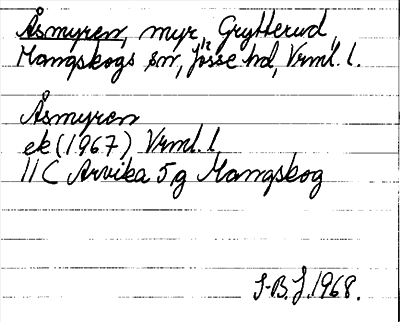 Åsmyren, myr, Grytterud,
Mangskogs sn, Jösse hd, Vrml. l.
Åsmyren
ek (1967) Vrml. l
11C Arvika 5g Mangskog
S-B.J. 1968.